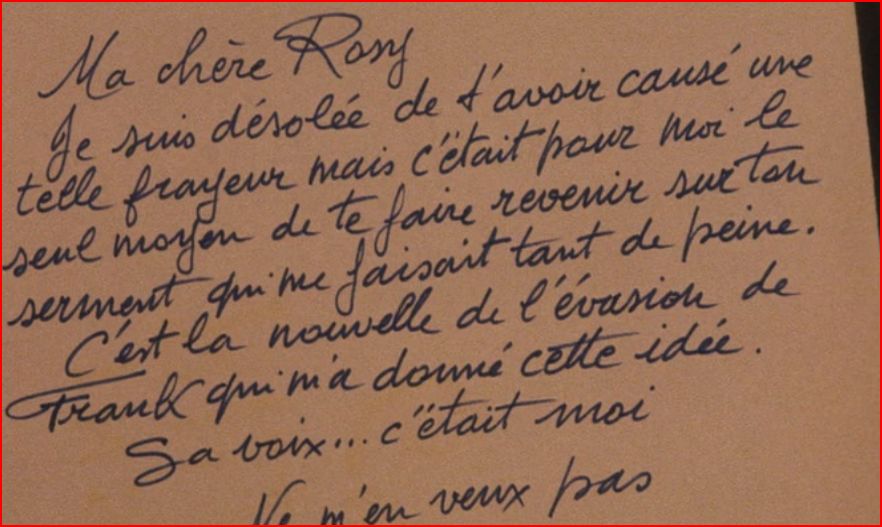 Ma chère Rosy
Je suis désolée de t'avoir causé une
telle frayeur mais c'était pour moi le
seul moyen de te faire revenir sur ton
serment qui me faisait tant de peine.
C'est la nouvelle de l'évasion de
Frank qui m'a donné cette idée.
Sa voix... c'était moi
Ne m'en veux pas